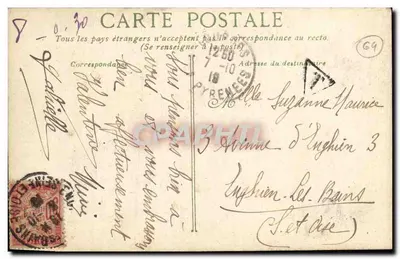 8 - 0.30
CARTE POSTALE
Tous les pays étrangers n'acceptent pas la correspondance au recto.
(Se renseigner à la poste)
Correspondance
Adresse du destinataire
64
T
12 50
7 - 10
PYRENEES
Nous pensons bien à
vous et vous embrassons
bien affectueusement
Valentine
Melle Suzanne Maurice
3 Avenue d'Enghien 3
Enghien-Les-Bains
(S. et Oise)
SEINE ET OISE